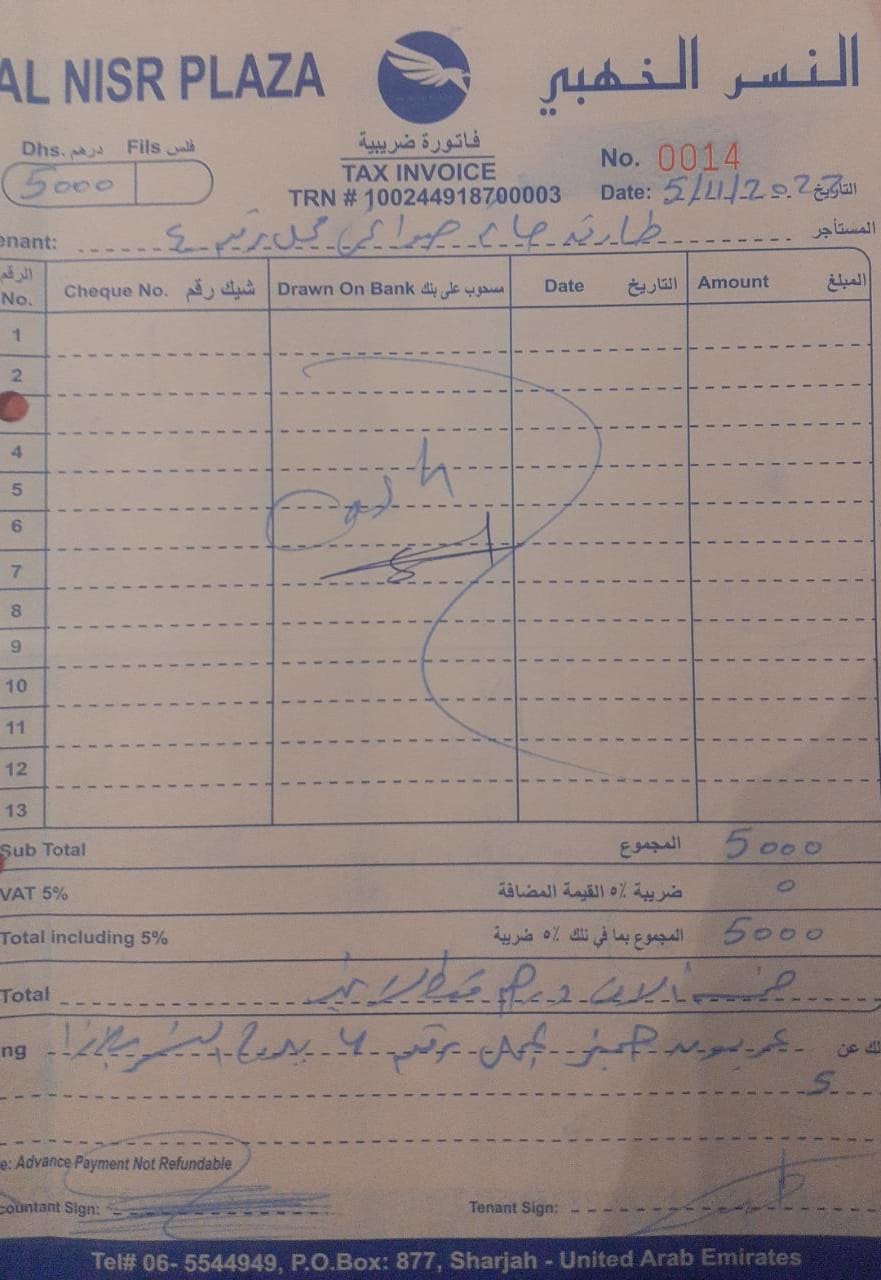 AL NISR PLAZA
النسر الذهبي
Dhs. درهم Fils فلس
5000
فاتورة ضريبية
TAX INVOICE
TRN # 100244918700003
No. 0014
Date: 5/11/2022 التاريخ
enant: طارق محل رقم 4 المستأجر
الرقم No. Cheque No. شيك رقم Drawn On Bank مسحوب على بنك Date التاريخ Amount المبلغ
1
2
4
5
6
7
8
9
10
11
12
13
Cash
Sub Total المجموع 5000
VAT 5% ضريبة ٥٪ القيمة المضافة 0
Total including 5% المجموع بما في ذلك ٥٪ ضريبة 5000
Total خمسة آلاف درهم فقط لا غير
ng رقم لك عن
5
e: Advance Payment Not Refundable
countant Sign:
Tenant Sign:
Tel# 06- 5544949, P.O.Box: 877, Sharjah - United Arab Emirates